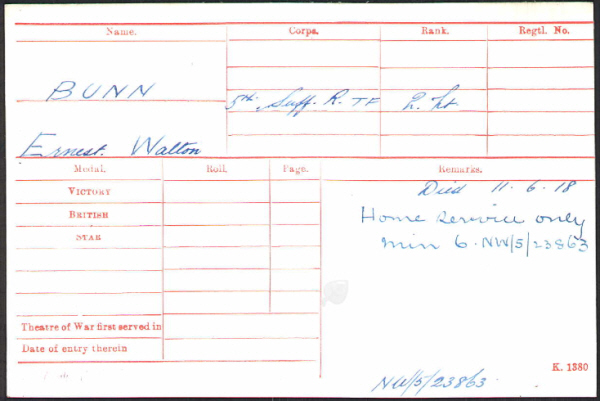 Name. Corps. Rank. Regtl. No.
BUNN 5th. Suff. R. TF 2. Lt
Ernest. Walton
Medal. Roll. Page. Remarks.
VICTORY Died 11. 6. 18
BRITISH Home service only
STAR min 6. NW/5/23863
Theatre of War first served in
Date of entry therein
K. 1380
NW/5/23863